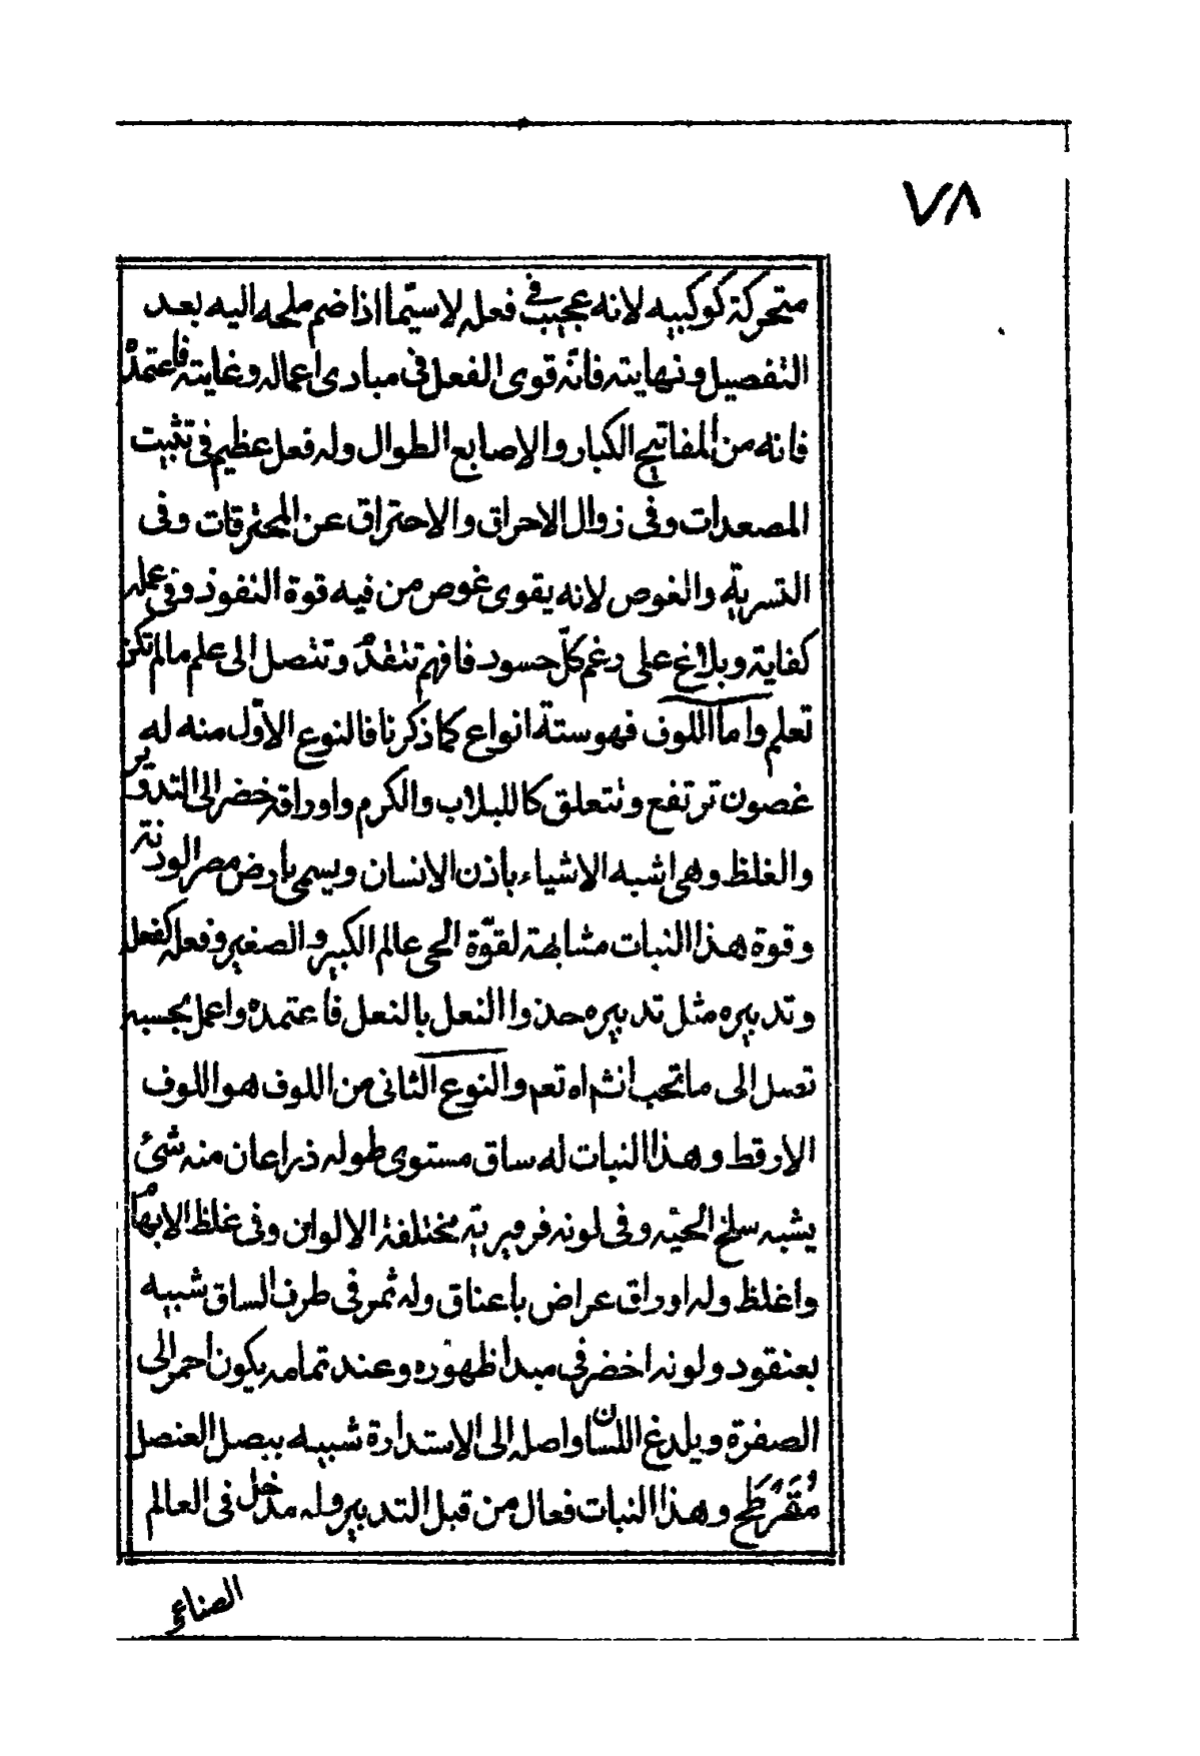 ٧٨
متحركة كوكبيه لانه عجيب في فعله لاسيّما اذا ضم ملحه اليه بعد
التفصيل ونهايته فانّه قوى الفعل في مبادى اعماله وغايته فاعتمدْ
فانه من المفاتيح الكبار والاصابع الطوال وله فعل عظيم في تثبيت
المصعدات وفى زوال الاحراق والاحتراق عن المحترقات وفى
التسرية والغوص لانه يقوى غوص من فيه قوة النفوذ وفى عمله
كفاية وبلاغ على رغم كلّ حسود فافهم تنفذْ وتتصل الى علم ما لم تكن
تعلم واما اللوف فهو ستة انواع كما ذكرنا فالنوع الاوّل منه له
غصون ترتفع وتتعلق كاللبلاب والكرم واوراقه خضر الى التدوير
والغلظ وهى اشبه الاشياء باذن الانسان ويسمى بارض مصر الودنة
وقوة هذا النبات مشابهة لقوّة الحى عالم الكبير والصغير وفعله كفعله
وتدبيره مثل تدبيره حذوا النعل بالنعل فاعتمدْه واعمل بحسبه
تصل الى ما تحب انشاه تعم والنوع الثانى من اللوف هو اللوف
الارقط وهذا النبات له ساق مستوى طوله ذراعان منه شئ
يشبه سلخ الحيّه وفى لونه فرفيرية مختلفة الالوان وفى غلظ الابهام
واغلظ وله اوراق عراض باعناق وله ثمر فى طرف الساق شبيه
بعنقود ولونه اخضر في مبدا ظهوره وعند تمامه يكون احمر الى
الصفرة ويلدغ اللسان واصله الى الاستدارة شبيه ببصل العنصل
مُفَرْطَح وهذا النبات فعال من قبل التدبير وله مدخل فى العالم
الصناعي